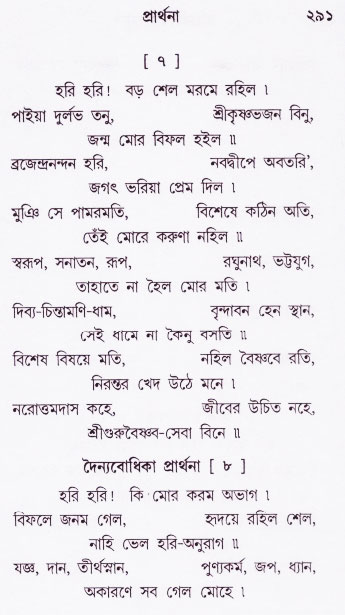 প্রার্থনা ২৯১
[ ৭ ]
হরি হরি! বড় শেল মরমে রহিল ।
পাইয়া দুর্লভ তনু, শ্রীকৃষ্ণভজন বিনু,
জন্ম মোর বিফল হইল ॥
ব্রজেন্দ্রনন্দন হরি, নবদ্বীপে অবতরি',
জগৎ ভরিয়া প্রেম দিল ।
মুঞি সে পামরমতি, বিশেষে কঠিন অতি,
তেঁই মোরে করুণা নহিল ॥
স্বরূপ, সনাতন, রূপ, রঘুনাথ, ভট্টযুগ,
তাহাতে না হৈল মোর মতি ।
দিব্য-চিন্তামণি-ধাম, বৃন্দাবন হেন স্থান,
সেই ধামে না কৈনু বসতি ॥
বিশেষ বিষয়ে মতি, নহিল বৈষ্ণবে রতি,
নিরন্তর খেদ উঠে মনে ।
নরোত্তমদাস কহে, জীবের উচিত নহে,
শ্রীগুরুবৈষ্ণব-সেবা বিনে ॥
দৈন্যবোধিকা প্রার্থনা [ ৮ ]
হরি হরি! কি মোর করম অভাগ ।
বিফলে জনম গেল, হৃদয়ে রহিল শেল,
নাহি ভেল হরি-অনুরাগ ॥
যজ্ঞ, দান, তীর্থস্নান, পুণ্যকর্ম, জপ, ধ্যান,
অকারণে সব গেল মোহে ।